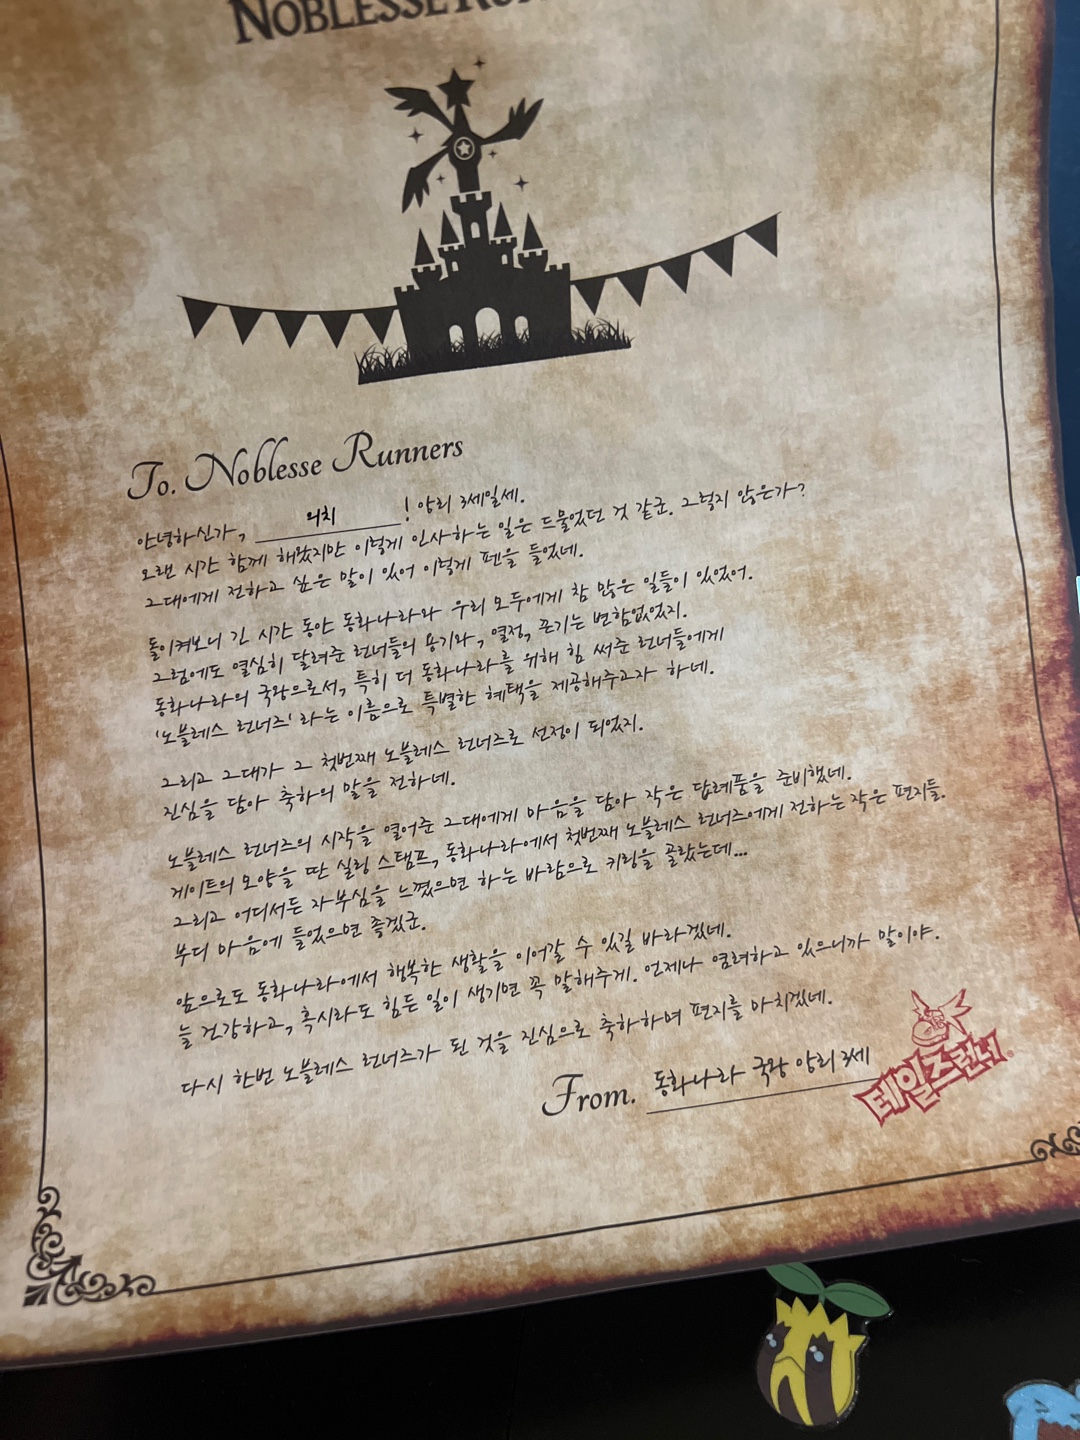 NOBLESSE RUN
To. Noblesse Runners
안녕하신가, 의치! 앙리 3세일세.
오랜 시간 함께 해왔지만 이렇게 인사하는 일은 드물었던 것 같군. 그렇지 않은가?
그대에게 전하고 싶은 말이 있어 이렇게 펜을 들었네.
돌이켜보니 긴 시간 동안 동화나라와 우리 모두에게 참 많은 일들이 있었어.
그럼에도 열심히 달려준 런너들의 용기와, 열정, 끈기는 변함없었지.
동화나라의 국왕으로서, 특히 더 동화나라를 위해 힘 써준 런너들에게
'노블레스 런너즈' 라는 이름으로 특별한 혜택을 제공해주고자 하네.
그리고 그대가 그 첫번째 노블레스 런너즈로 선정이 되었지.
진심을 담아 축하의 말을 전하네.
노블레스 런너즈의 시작을 열어준 그대에게 마음을 담아 작은 답례품을 준비했네.
게이트의 모양을 딴 실링 스탬프, 동화나라에서 첫번째 노블레스 런너즈에게 전하는 작은 편지들.
그리고 어디서든 자부심을 느꼈으면 하는 바람으로 키링을 골랐는데...
부디 마음에 들었으면 좋겠군.
앞으로도 동화나라에서 행복한 생활을 이어갈 수 있길 바라겠네.
늘 건강하고, 혹시라도 힘든 일이 생기면 꼭 말해주게. 언제나 염려하고 있으니까 말이야.
다시 한번 노블레스 런너즈가 된 것을 진심으로 축하하며 편지를 마치겠네.
From. 동화나라 국왕 앙리 3세
테일즈런너